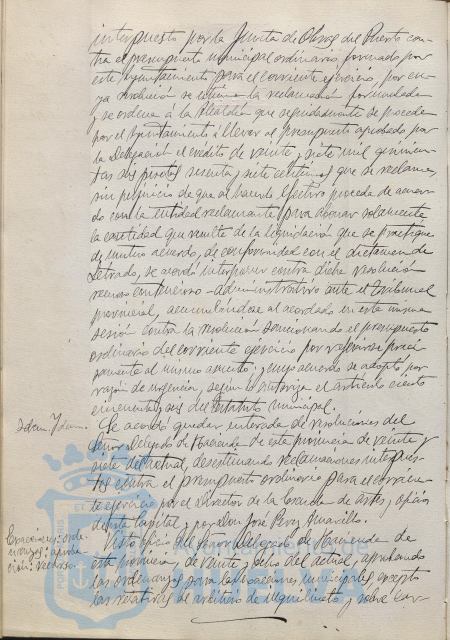 interpuesto por la Junta de Obras del Puerto con-
tra el presupuesto municipal ordinario formado por
este Ayuntamiento para el corriente ejercicio, por cu-
ya resolución se estima la reclamación formulada
y se ordena á la Alcaldía que seguidamente se proceda
por el Ayuntamiento á llevar al presupuesto aprobado por
la Delegación el crédito de veinte y siete mil quinien-
tas dos pesetas sesenta y siete céntimos que se reclama,
sin perjuicio de que al hacerlo efectivo proceda de acuer-
do con la entidad reclamante para abonar solamente
la cantidad que resulte de la liquidación que se practique
de mutuo acuerdo, de conformidad con el dictamen de
Letrado, se acordó interponer contra dicha resolución
recurso contencioso-administrativo ante el Tribunal
provincial, acumulándose al acordado en esta misma
sesión contra la resolución sancionando el presupuesto
ordinario del corriente ejercicio por referirse preci-
samente al mismo asunto; cuyo acuerdo se adoptó por
razón de urgencia, según lo autoriza el artículo ciento
cincuenta y seis del Estatuto municipal.
Idem. Idem.
Se acordó quedar enterada de resoluciones del
Señor Delegado de Hacienda de esta provincia de veinte y
siete del actual, desestimando reclamaciones interpues-
tas contra el presupuesto ordinario para el corrien-
te ejercicio por el Director de la Escuela de Artes y Oficios
de esta Capital y por Don José Pérez
Exacciones: orde-
nanzas: aproba-
ción: recurso.
Visto oficio del Señor Delegado de Hacienda de
esta provincia, de veinte y ocho del actual, aprobando
las ordenanzas para las exacciones municipales excepto
las relativas al arbitrio de inquilinato y sobre